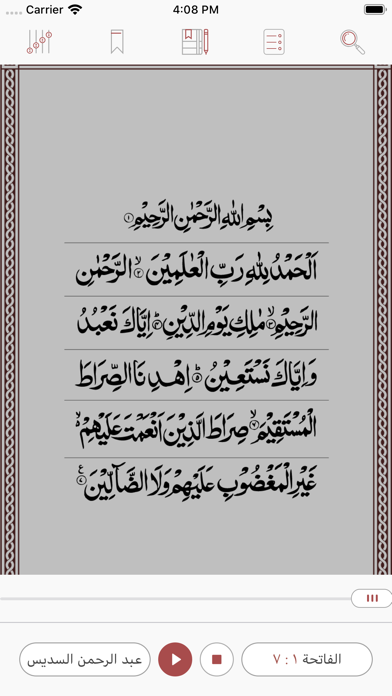 Carrier 4:08 PM
بِسْمِ اللهِ الرَّحْمٰنِ الرَّحِيْمِ ۝١
اَلْحَمْدُ لِلّٰهِ رَبِّ الْعٰلَمِيْنَ ۙ۝٢ الرَّحْمٰنِ
الرَّحِيْمِ ۙ۝٣ مٰلِكِ يَوْمِ الدِّيْنِ ؕ۝٤ اِيَّاكَ نَعْبُدُ
وَاِيَّاكَ نَسْتَعِيْنُ ؕ۝٥ اِهْدِنَا الصِّرَاطَ
الْمُسْتَقِيْمَ ۙ۝٦ صِرَاطَ الَّذِيْنَ اَنْعَمْتَ عَلَيْهِمْ ۙ
غَيْرِ الْمَغْضُوْبِ عَلَيْهِمْ وَلَا الضَّآلِّيْنَ ۝٧
عبد الرحمن السديس
الفاتحة ١ : ٧